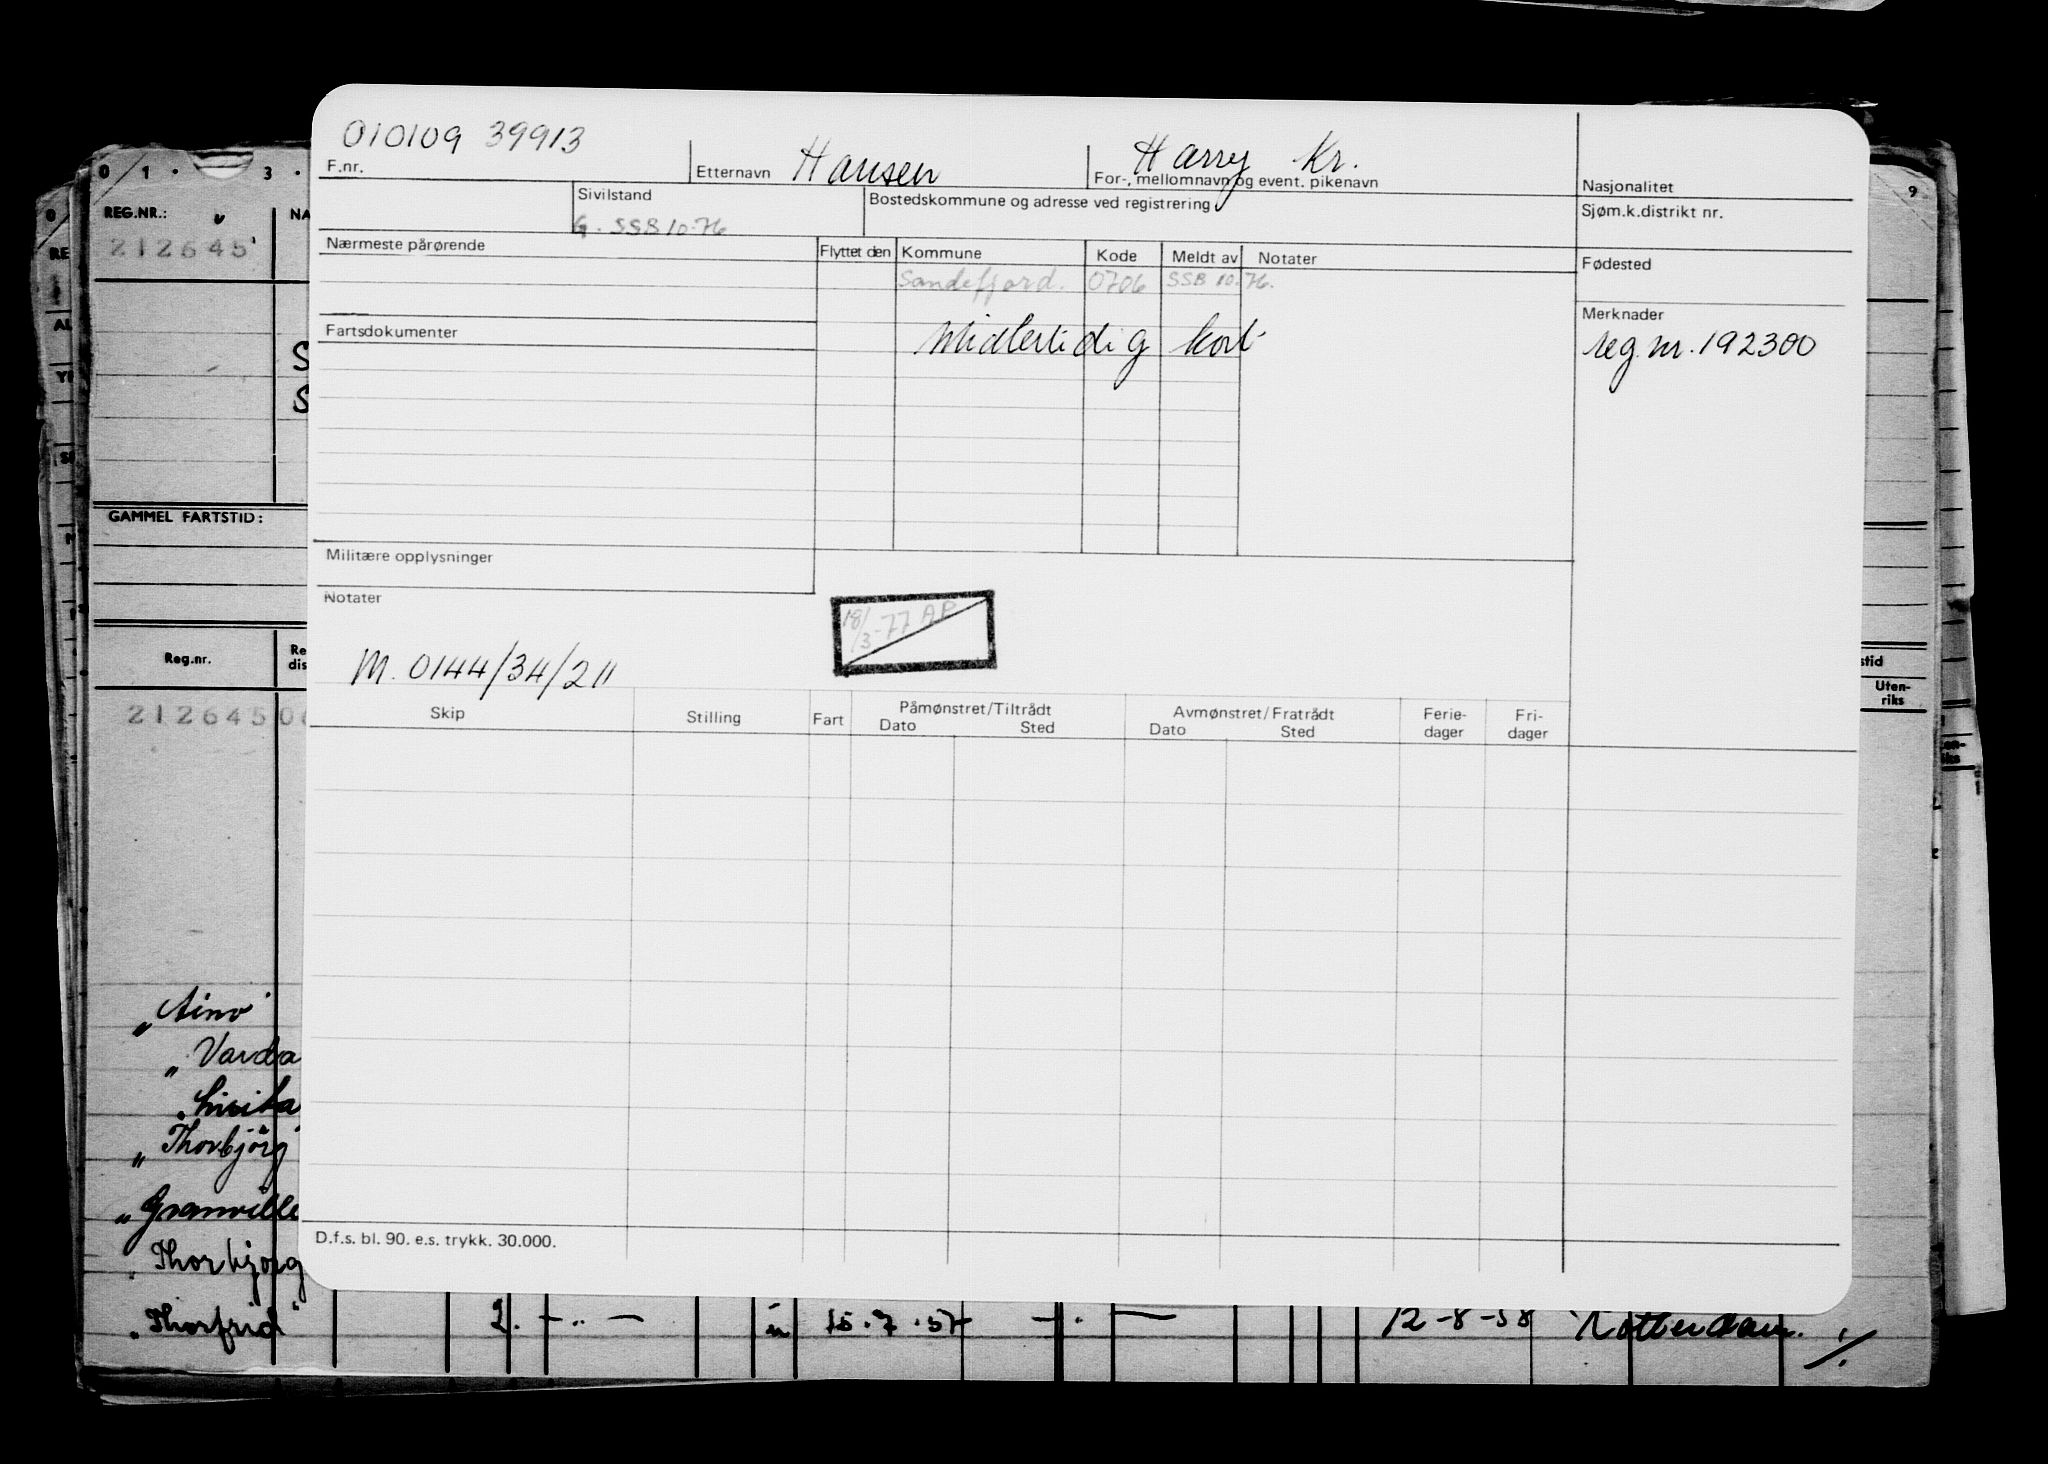 010109 39913
F.nr.
Etternavn Hansen
Harry Kr.
For-, mellomnavn og event. pikenavn
Nasjonalitet
Sivilstand
G. SSB 10-76
Bostedskommune og adresse ved registrering
Sjøm.k.distrikt nr.
Nærmeste pårørende
Flyttet den Kommune Kode Meldt av Notater
Sandefjord. 0706 SSB 10-76.
Fødested
Fartsdokumenter
Midlertidig kort
Merknader
reg.nr. 192300
Militære opplysninger
Notater
18/3-77 AP
M. 0144/34/211
Skip Stilling Fart Påmønstret/Tiltrådt Avmønstret/Fratrådt Ferie-dager Fri-dager
Dato Sted Dato Sted
D.f.s. bl. 90. e.s. trykk. 30.000.
0 1 . 3 .
9
REG.NR.: NA
212645
S
S
GAMMEL FARTSTID:
Reg.nr. Re
dis
stid
Uten-
riks
212645 0
"Aino"
"Varda
"Thorbjörg"
"Granville
"Thorbjørg
"Thorfrid" 2. -..- 15.7.57 -.- 12-8-58 Rotterdam.